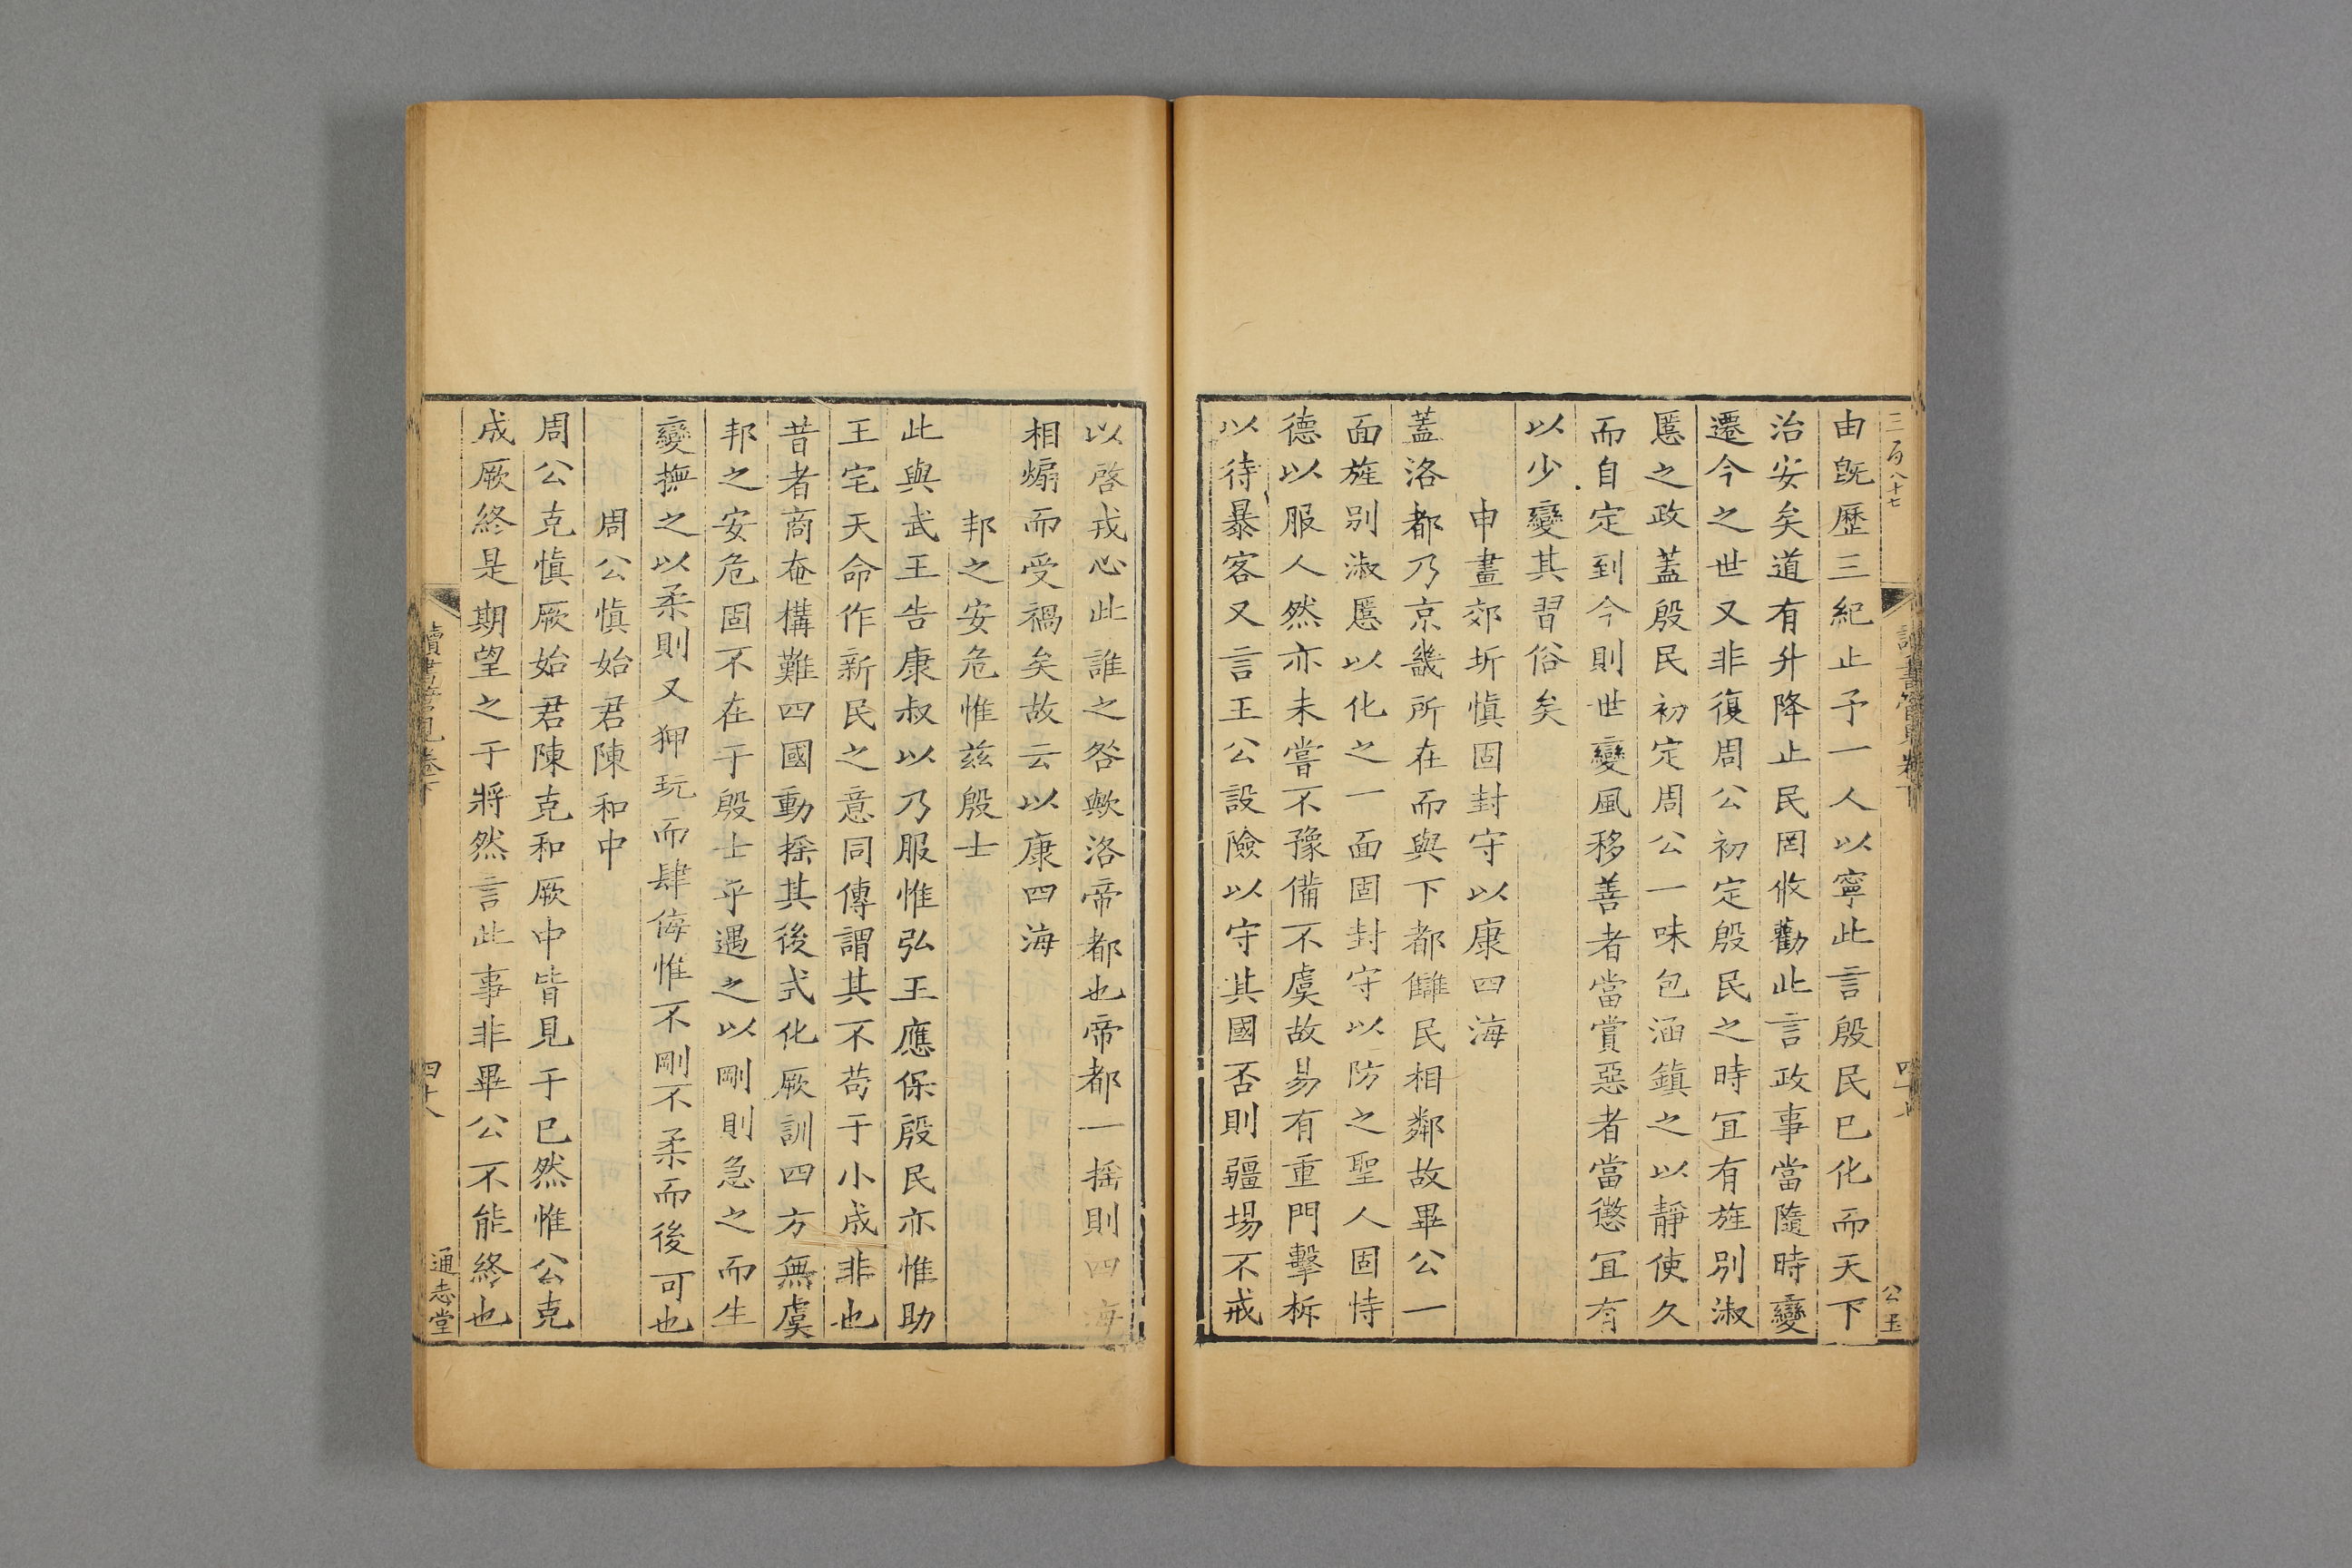 三百八十七
由旣歷三紀止予一人以寧此言殷民已化而天下
治安矣道有升降止民罔攸勸此言政事當隨時變
遷今之世又非復周公初定殷民之時冝有旌別淑
慝之政蓋殷民初定周公一味包涵鎮之以靜使久
而自定到今則世變風移善者當賞惡者當懲冝有
以少變其習俗矣
申畫郊圻愼固封守以康四海
蓋洛都乃京畿所在而與下都讎民相鄰故畢公一
面旌別淑慝以化之一面固封守以防之聖人固恃
德以服人然亦未嘗不豫備不虞故易有重門擊柝
以待暴客又言王公設險以守其國否則疆埸不戒
讀書管見卷下
四十七
公玉
以啓戎心此誰之咎歟洛帝都也帝都一搖則四海
相煽而受禍矣故云以康四海
邦之安危惟兹殷士
此與武王告康叔以乃服惟弘王應保殷民亦惟助
王宅天命作新民之意同傳謂其不苟于小成非也
昔者商奄構難四國動搖其後式化厥訓四方無虞
邦之安危固不在于殷士乎遇之以剛則急之而生
變撫之以柔則又狎玩而肆侮惟不剛不柔而後可也
周公愼始君陳和中
周公克愼厥始君陳克和厥中皆見于已然惟公克
成厥終是期望之于將然言此事非畢公不能終也
讀書管見卷下
四十八
通志堂